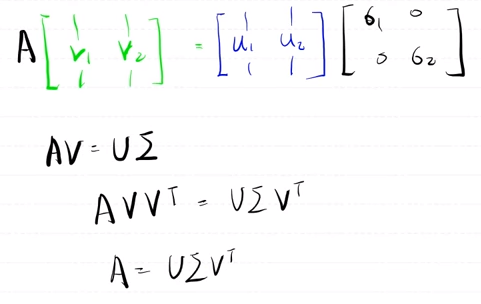 A [v₁ v₂] = [u₁ u₂] [σ₁ 0
0 σ₂]
AV = UΣ
AVVᵀ = UΣVᵀ
A = UΣVᵀ